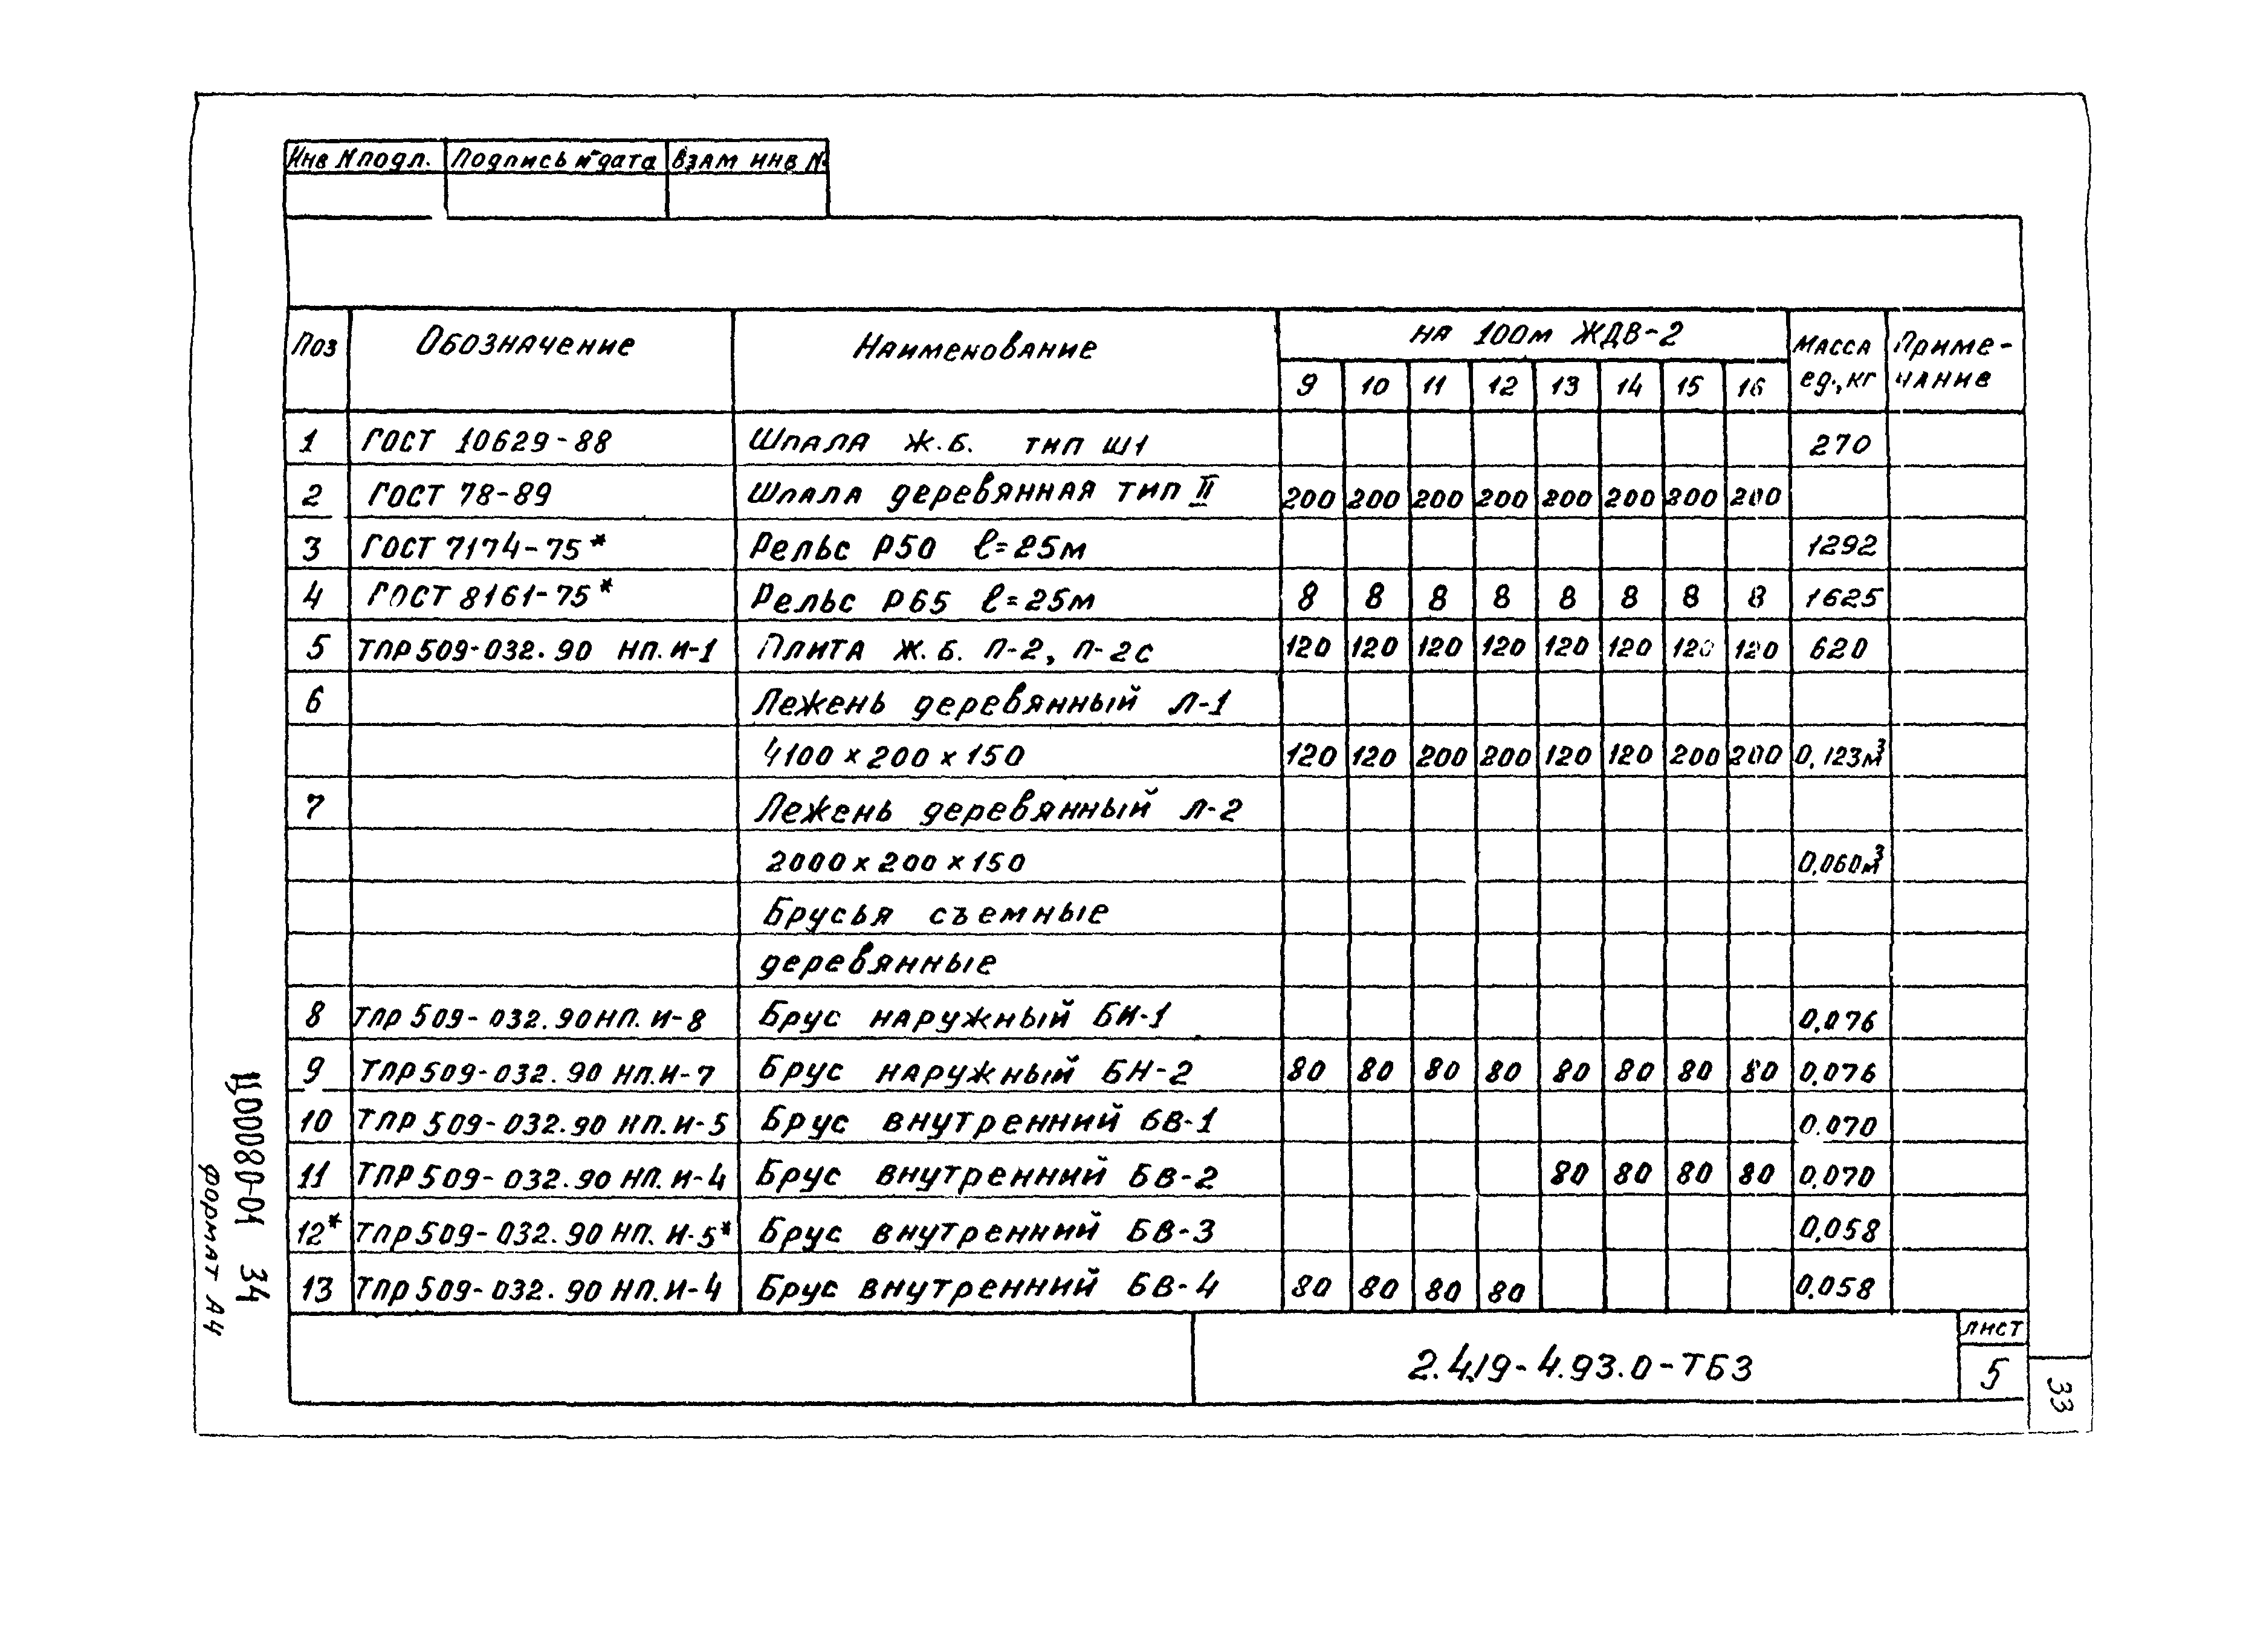 Инв N подл. Подпись и дата Взам инв N
Поз Обозначение Наименование на 100м ЖДВ-2 Масса ед., кг Приме-чание
9 10 11 12 13 14 15 16
1 ГОСТ 10629-88 Шпала ж.б. тип Ш1 270
2 ГОСТ 78-89 Шпала деревянная тип II 200 200 200 200 200 200 200 200
3 ГОСТ 7174-75* Рельс Р50 ℓ=25м 1292
4 ГОСТ 8161-75* Рельс Р65 ℓ=25м 8 8 8 8 8 8 8 8 1625
5 ТПР 509-032.90 НП.И-1 Плита ж.б. П-2, П-2с 120 120 120 120 120 120 120 120 620
6 Лежень деревянный Л-1
4100×200×150 120 120 200 200 120 120 200 200 0,123м³
7 Лежень деревянный Л-2
2000×200×150 0,060м³
Брусья съемные
деревянные
8 ТПР 509-032.90 НП.И-8 Брус наружный БН-1 0,076
9 ТПР 509-032.90 НП.И-7 Брус наружный БН-2 80 80 80 80 80 80 80 80 0,076
10 ТПР 509-032.90 НП.И-5 Брус внутренний БВ-1 0.070
11 ТПР 509-032.90 НП.И-4 Брус внутренний БВ-2 80 80 80 80 0,070
12* ТПР 509-032.90 НП.И-5* Брус внутренний БВ-3 0,058
13 ТПР 509-032.90 НП.И-4 Брус внутренний БВ-4 80 80 80 80 0,058
2.419-4.93.0-ТБ3
лист
5
33
Ц00080-01 34
формат А4